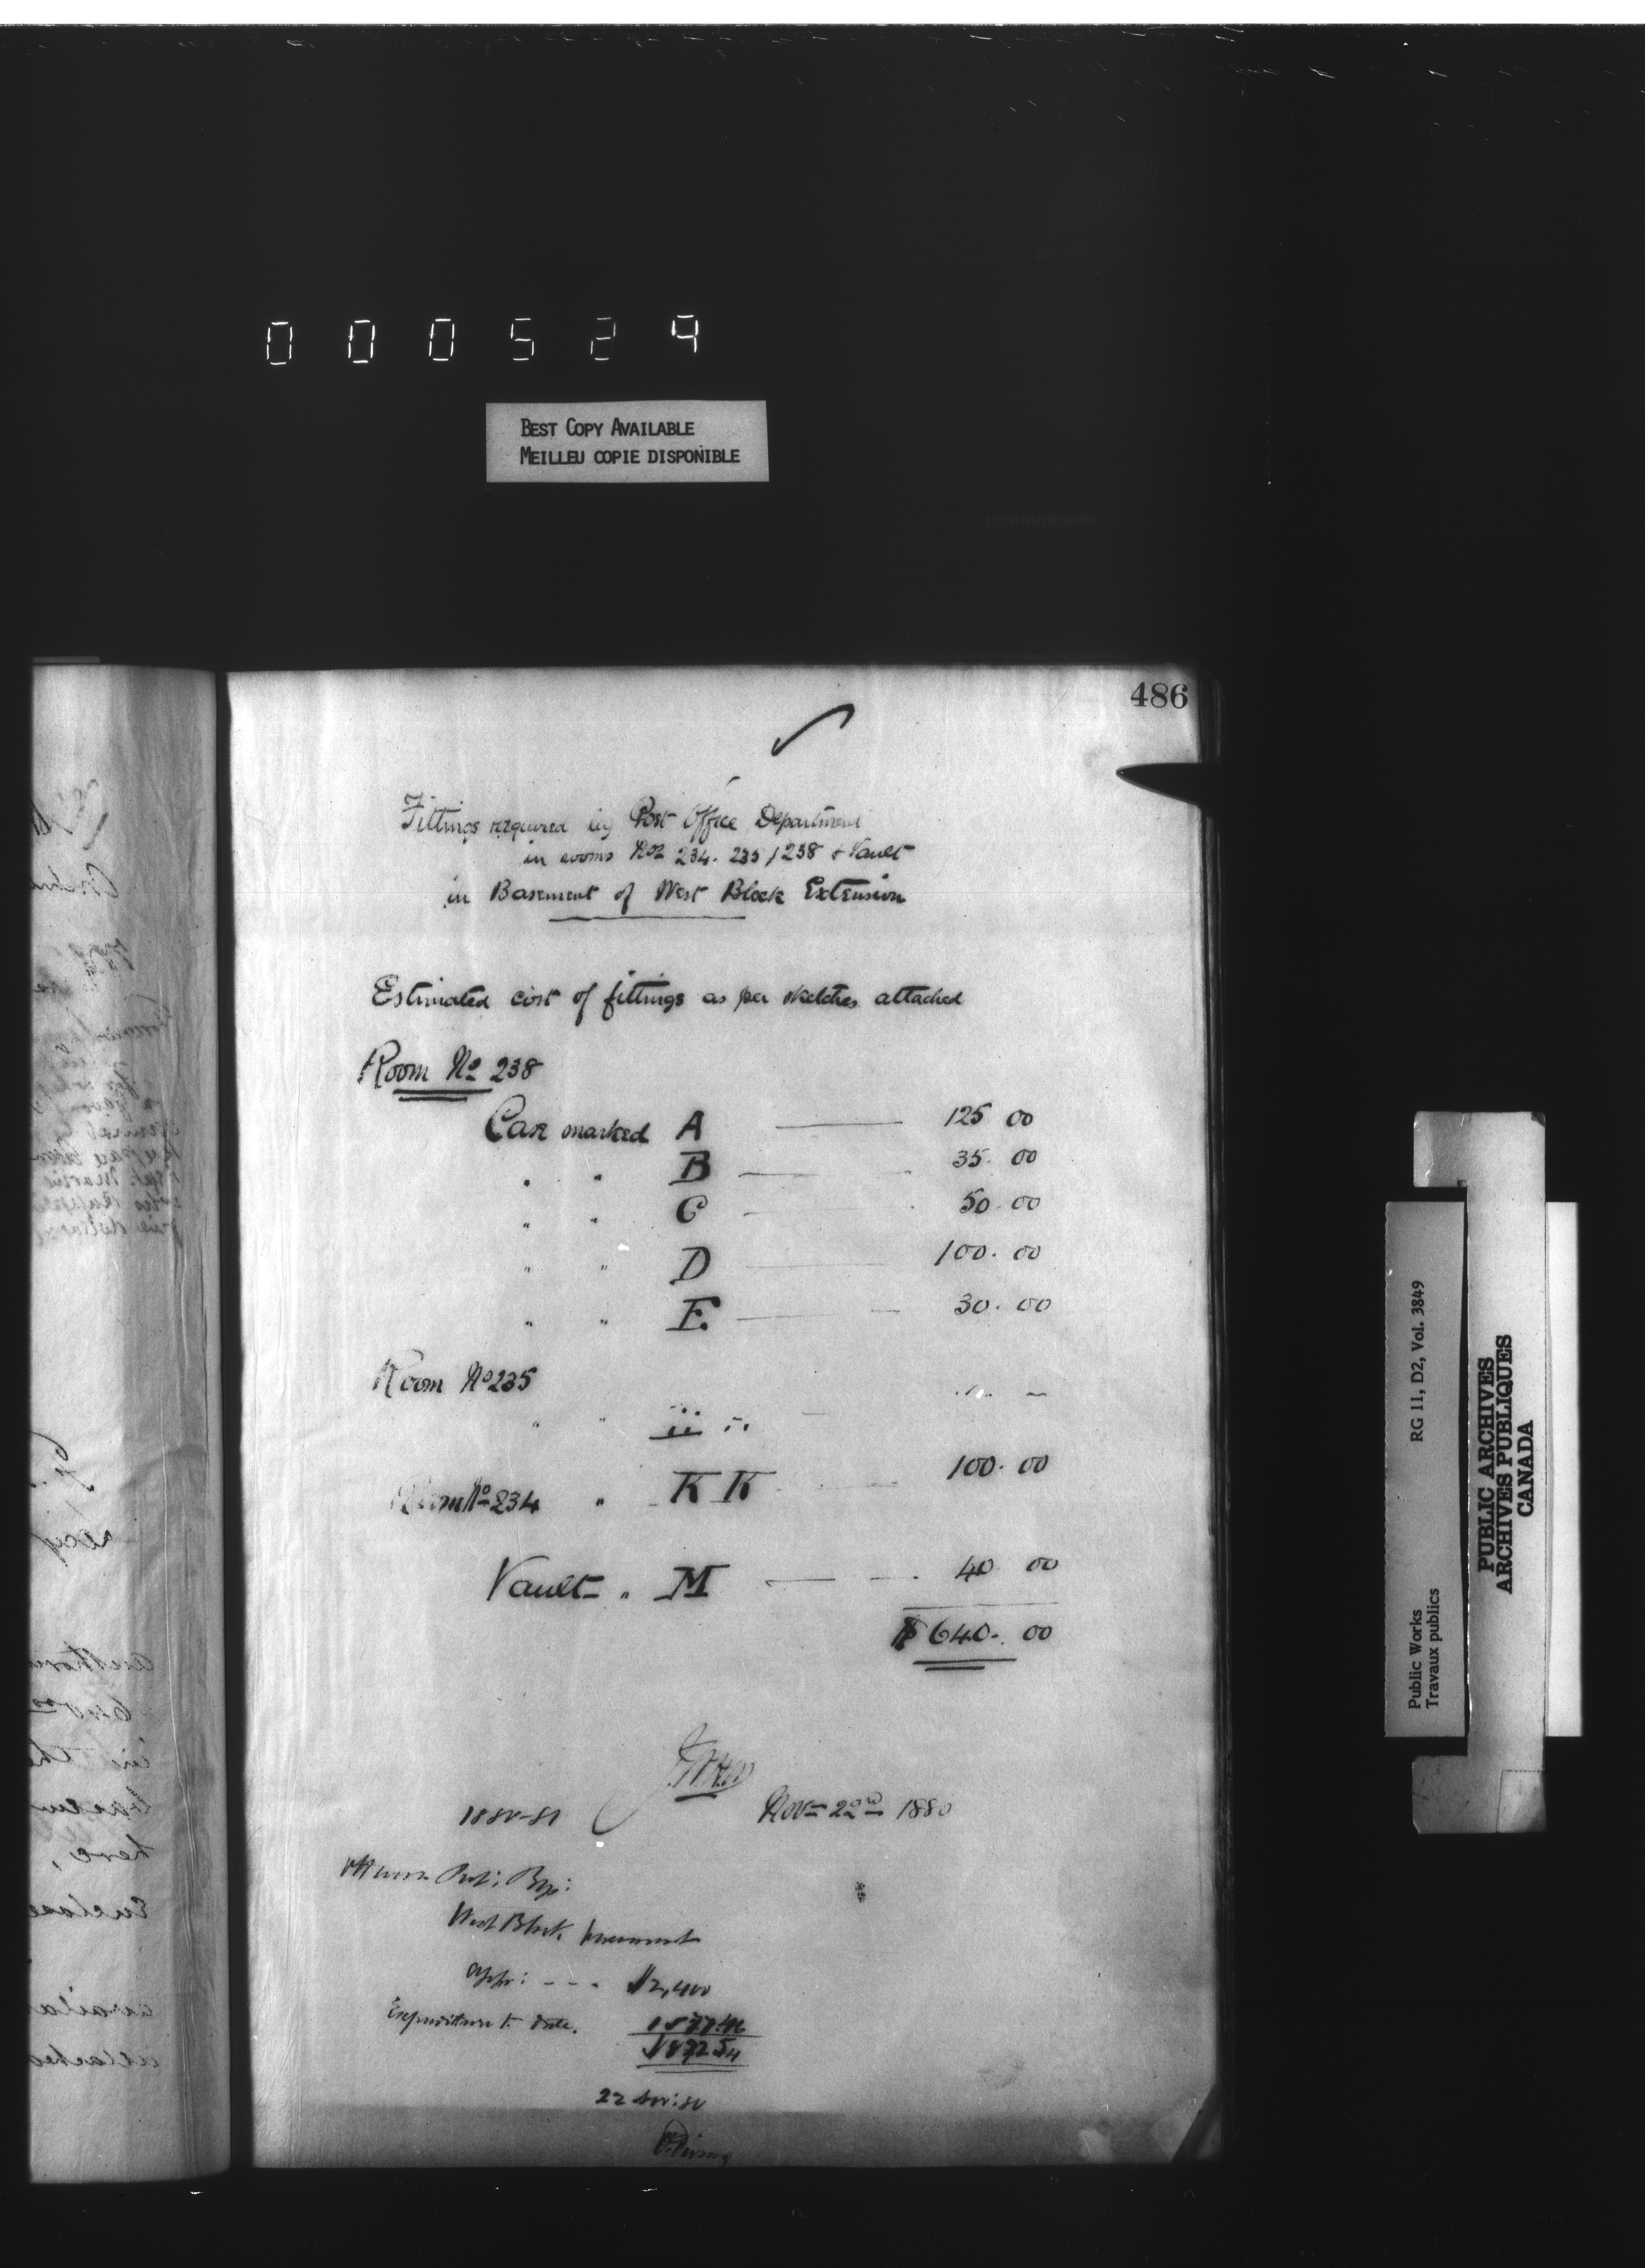 000524
BEST COPY AVAILABLE
MEILLEU COPIE DISPONIBLE
486
Fittings required by Post Office Department
in rooms Nos 234. 235 / 238 & Vault
in Basement of West Block Extension
Estimated cost of fittings as per sketches attached
Room No 238
Case marked A — 125 00
" " B — 35. 00
" " C — 50. 00
" " D — 100. 00
" " E. — 30. 00
Room No 235
" "
Room No 234 " K K — 100. 00
Vault " M — 40 00
$640. 00
1880-81
Nov 22nd 1880
West Block basement
app: - - - $2,400
Expenditure to date.
22 Nov: 80
Public Works
Travaux publics
RG 11, D2, Vol. 3849
PUBLIC ARCHIVES
ARCHIVES PUBLIQUES
CANADA